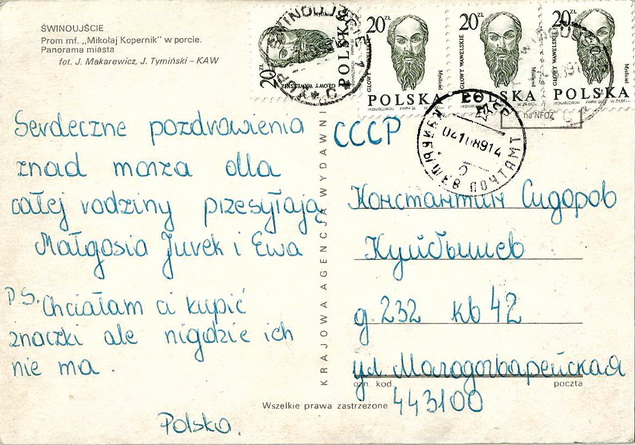 ŚWINOUJŚCIE
Prom mf. „Mikołaj Kopernik" w porcie.
Panorama miasta
fot. J. Makarewicz, J. Tymiński - KAW
Serdeczne pozdrowienia
znad morza dlla
całej rodziny przesyłają
Małgosia Jurek i Ewa
P.S. Chciałam ci kupić
znaczki ale nigdzie ich
nie ma.
Polska.
KRAJOWA AGENCJA WYDAWNI
Wszelkie prawa zastrzeżone
20 ZŁ
GŁOWY WAWELSKIE
POLSKA
20 ZŁ
GŁOWY WAWELSKIE
POLSKA
20 ZŁ
GŁOWY WAWELSKIE
POLSKA
20 ZŁ
GŁOWY WAWELSKIE
POLSKA
ŚWINOUJŚCIE 1
КУЙБЫШЕВ ПОЧТАМТ
СССР
Константин Сидоров
Куйбышев
д 232 кв 42
ул Малогвардейская
ozn kod poczta
443100